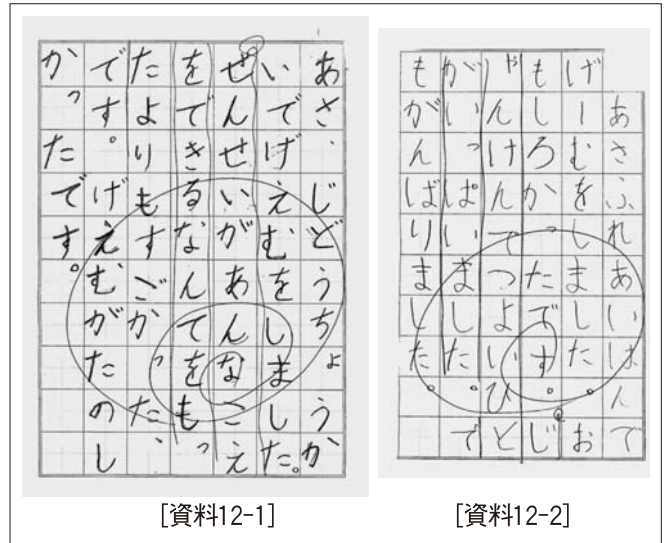 あさ、じどうちょうか
いでげえむをしました。
ぜんせいがあんなこえ
をできるなんてをもっ
たよりもすごかった、
です。げえむがたのし
かったです。
[資料12-1]
あさふれあいはんで
げーむをしました。お
もしろかったです。じ
ゃんけんでつよいひと
がいっぱいました。で
もがんばりました。
[資料12-2]